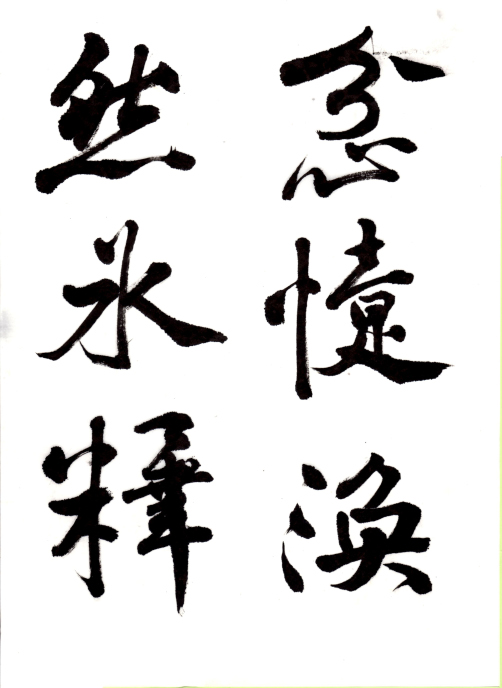 忿懥渙
然氷釋